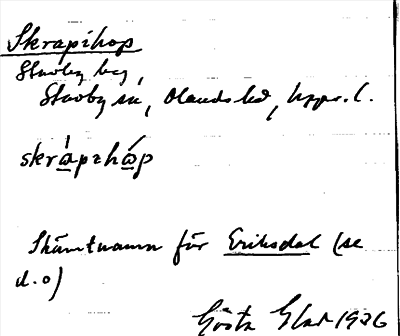 Skrapihop
Stavby by,
Stavby sn, Olands hd, Upps. l.
skrápihóp
Skämtnamn för Eriksdal (se
d. o)
Gösta 1926